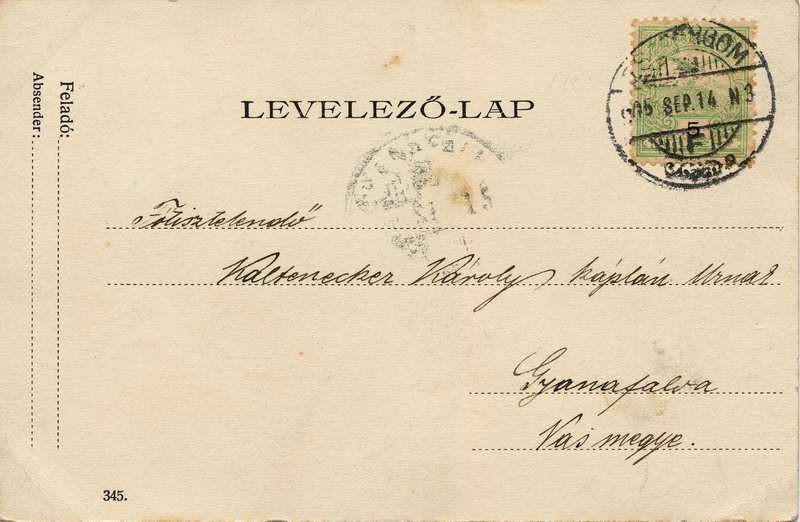 LEVELEZŐ-LAP
905 SEP. 14 N 3
5
15
Főtisztelendő
Kaltenecker Károly káplán Urnak
Gyanafalva
Vas megye.
Feladó:
Absender:
345.